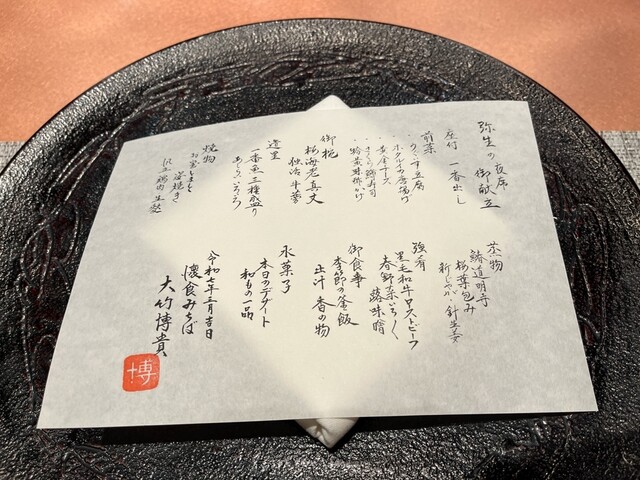 弥生の夜席
御献立
座付 一番出し
前菜
・うぐいす豆腐
・ホタルイカ唐揚げ
・さくら鯛寿司
御椀
桜海老真丈
独活 牛蒡
造里
一番魚三種盛り
あしらいいろいろ
焼物
蒸物
道明寺
桜葉包み
新じゃが 針生姜
強肴
黒毛和牛ローストビーフ
春野菜いろいろ
御食事
季節の釜飯
止汁 香の物
水菓子
本日のデザート
和もの一品
三月吉日
懐食みちば
大竹博貴
博